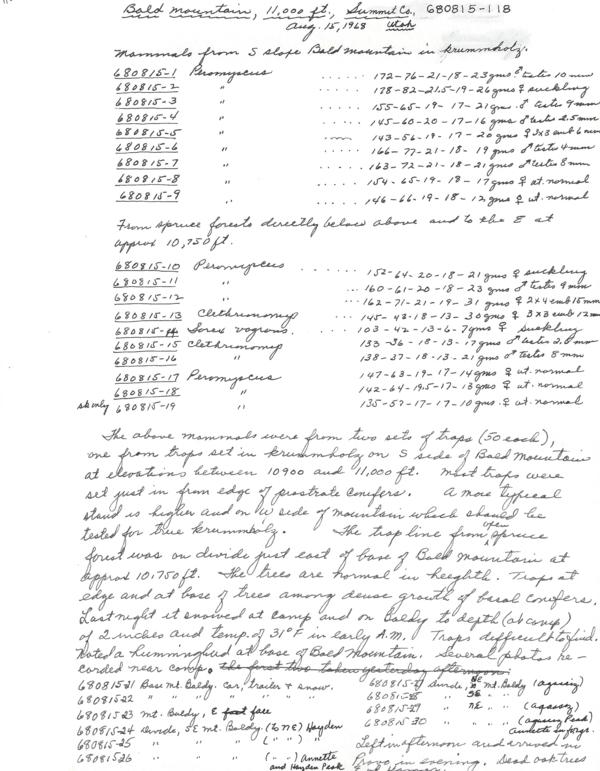 Bald mountain, 11,000 ft., Summit Co., 680815-118
Aug. 15, 1968 Utah
Mammals from S slope Bald mountain in krummholz.
680815-1 Peromyscus ..... 172-76-21-18-23gms ♂ testes 10 mm
680815-2 " ..... 178-82-21.5-19-26gms ♀ suckling
680815-3 " ..... 155-65-19-17-21gm. ♂ testes 9mm
680815-4 " ..... 145-60-20-17-16gms ♂ testes 2.5mm
680815-5 " 143-56-19-17-20gms ♀ 3x3 emb 6mm
680815-6 " ..... 166-77-21-18-19gms ♂ testes 4mm
680815-7 " ..... 163-72-21-18-21gms ♂ testes 8mm
680815-8 " ..... 154-65-19-18-17gms ♀ ut. normal
680815-9 " .... 146-66-19-18-12gms ♀ ut. normal
From spruce forests directly below above and to the E at
approx 10,750 ft.
680815-10 Peromyscus ...... 152-64-20-18-21gms ♀ suckling
680815-11 " ... 160-61-20-18-23gms ♂ testes 9mm
680815-12 " ... 162-71-21-19-31gms ♀ 2x4 emb 15mm
680815-13 Clethrionomys ... 145-48-18-13-30gms ♀ 3x3 emb 12mm
680815-14 Sorex vagrans. ... 103-42-13-6-7gms ♀ suckling
680815-15 Clethrionomys 133-36-18-13-17gms ♂ testes 2.0mm
680815-16 " 138-37-18-13-21gms ♂ testes 8mm
680815-17 Peromyscus 147-63-19-17-14gms ♀ ut. normal
680815-18 " 142-64-19.5-17-13gms ♀ ut. normal
sk only 680815-19 " 135-57-17-17-10gms. ♀ ut. normal
The above mammals were from two sets of traps (50 each),
one from traps set in krummholz on S side of Bald Mountain
at elevations between 10900 and 11,000 ft. most traps were
set just in from edge of prostrate conifers. A more typical
stand is higher and on W side of mountain which should be
tested for true krummholz. The trap line from open spruce
forest was on divide just east of base of Bald Mountain at
approx 10,750 ft. The trees are normal in heighth. Traps at
edge and at base of trees among dense growth of basal conifers.
Last night it snowed at camp and on Baldy to depth (at camp)
of 2 inches and temp. of 31°F in early A.M. Traps difficult to find.
Noted a hummingbird at base of Bald Mountain. Several photos re-
corded near camp. the first two taken yesterday afternoon
68081521 Base mt Baldy. car, trailer + snow. 680815-27 divide, NE mt. Baldy (agassiz)
68081522 " " " " " " 680815-28 " SE " "
68081523 mt. Baldy, E foot face 680815-29 " NE " " (agassiz)
680815-24 divide, SE mt. Baldy. (to NE) Hayden 680815-30 " " " (agassiz Peak)
680815-25 " " " " (" ") Annette in forgr.
68081526 " " " " (" ") Annette Left in afternoon and arrived in
and Hayden Peak Provo in evening. Dead oak trees